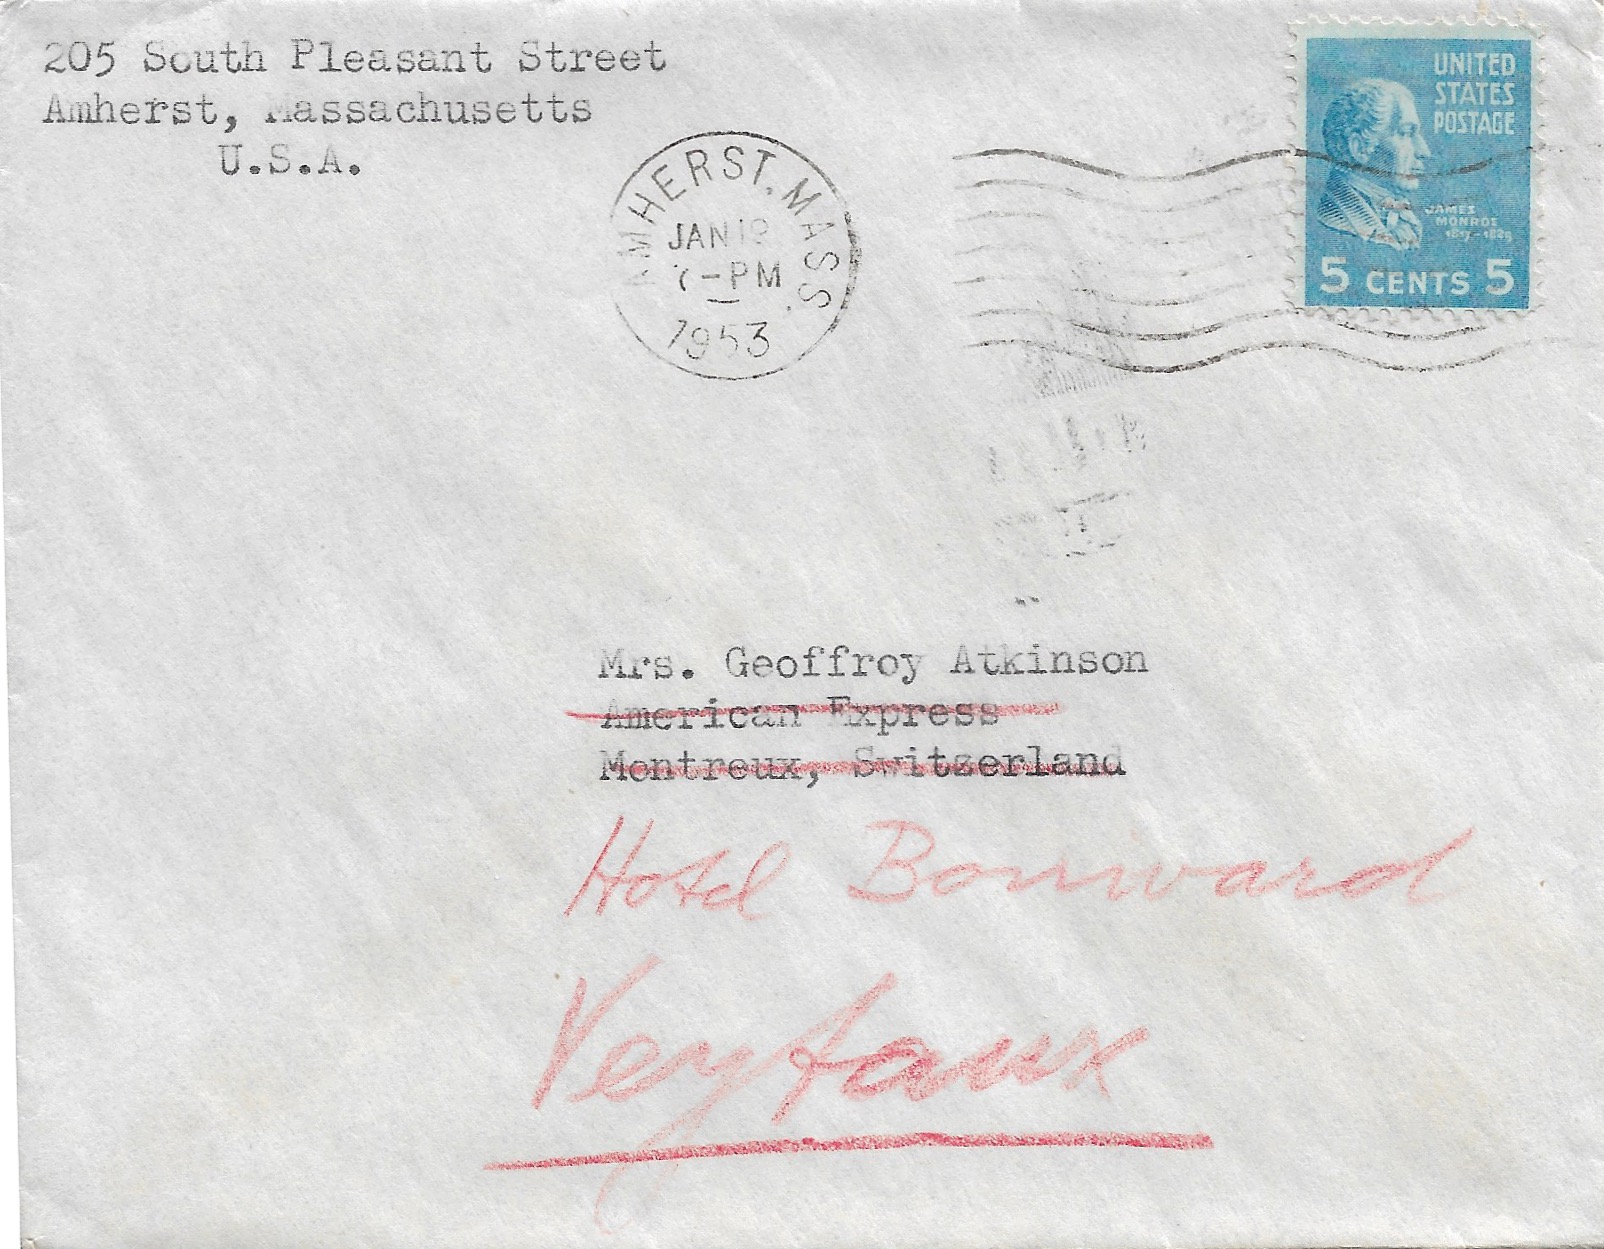 205 South Pleasant Street
Amherst, Massachusetts
U.S.A.
AMHERST, MASS.
JAN 19
7-PM
1953
UNITED
STATES
POSTAGE
JAMES
MONROE
1817-1825
5 CENTS 5
Mrs. Geoffroy Atkinson
American Express
Montreux, Switzerland
Hotel Bonivard
Veytaux